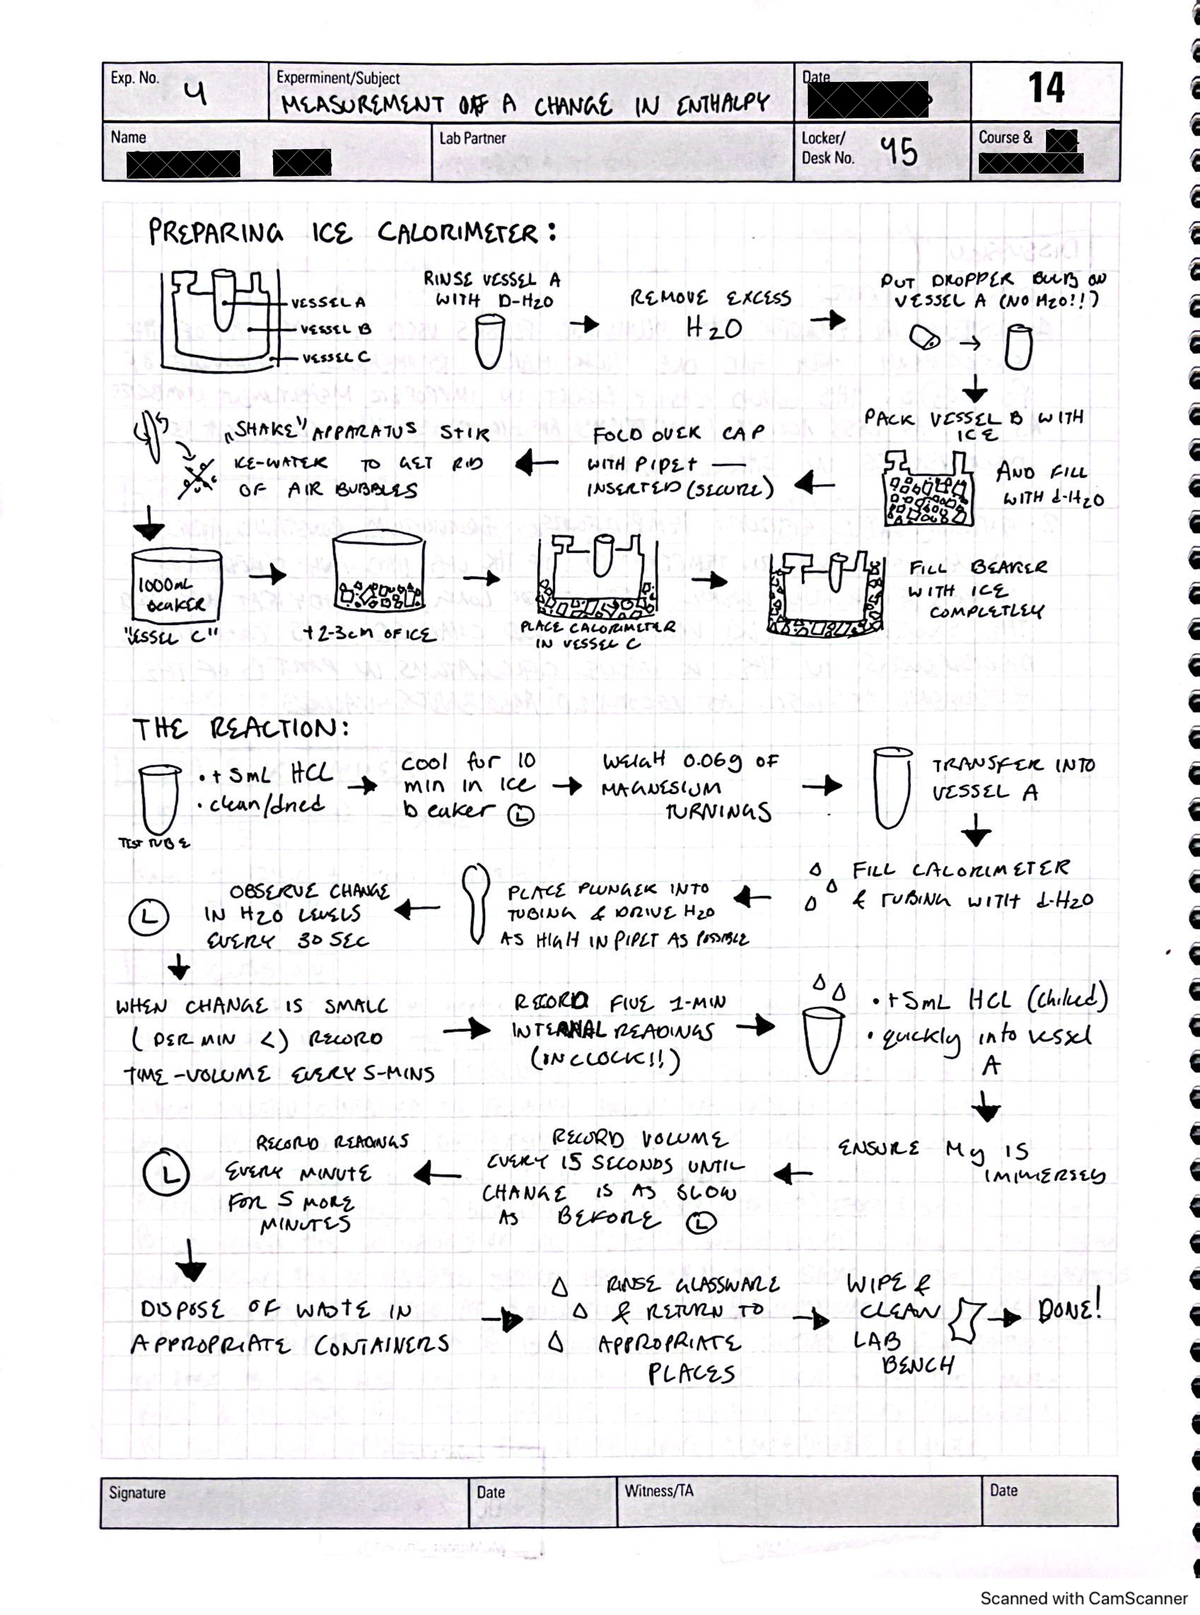 Exp. No.
4
Experminent/Subject
MEASUREMENT OF A CHANGE IN ENTHALPY
Date
14
Name
Lab Partner
Locker/
Desk No.
45
Course &
PREPARING ICE CALORIMETER:
VESSEL A
VESSEL B
VESSEL C
RINSE VESSEL A
WITH D-H2O
REMOVE EXCESS
H2O
PUT DROPPER BULB ON
VESSEL A (NO H2O!!)
PACK VESSEL B WITH
ICE
AND FILL
WITH d-H2O
FOLD OVER CAP
WITH PIPET —
INSERTED (SECURE)
"SHAKE" APPARATUS STIR
ICE-WATER TO GET RID
OF AIR BUBBLES
1000mL
BEAKER
"VESSEL C"
+2-3cm OF ICE
PLACE CALORIMETER
IN VESSEL C
FILL BEAKER
WITH ICE
COMPLETLEY
THE REACTION:
TEST TUBE
• + 5mL HCL
• clean/dried
COOL for 10
min in ice
beaker L
WEIGH 0.06g OF
MAGNESIUM
TURNINGS
TRANSFER INTO
VESSEL A
FILL CALORIMETER
& TUBING WITH d-H2O
PLACE PLUNGER INTO
TUBING & DRIVE H2O
AS HIGH IN PIPET AS POSSIBLE
OBSERVE CHANGE
IN H2O LEVELS
EVERY 30 SEC
L
WHEN CHANGE IS SMALL
( PER MIN <) RECORD
TIME-VOLUME EVERY 5-MINS
RECORD FIVE 1-MIN
INTERNAL READINGS
(ON CLOCK!!)
• + 5mL HCL (chilled)
• quickly into vessel
A
ENSURE Mg IS
IMMERSED
RECORD VOLUME
EVERY 15 SECONDS UNTIL
CHANGE IS AS SLOW
AS BEFORE L
RECORD READINGS
EVERY MINUTE
FOR 5 MORE
MINUTES
L
DISPOSE OF WASTE IN
APPROPRIATE CONTAINERS
RINSE GLASSWARE
& RETURN TO
APPROPRIATE
PLACES
WIPE &
CLEAN
LAB
BENCH
DONE!
Signature
Date
Witness/TA
Date
Scanned with CamScanner